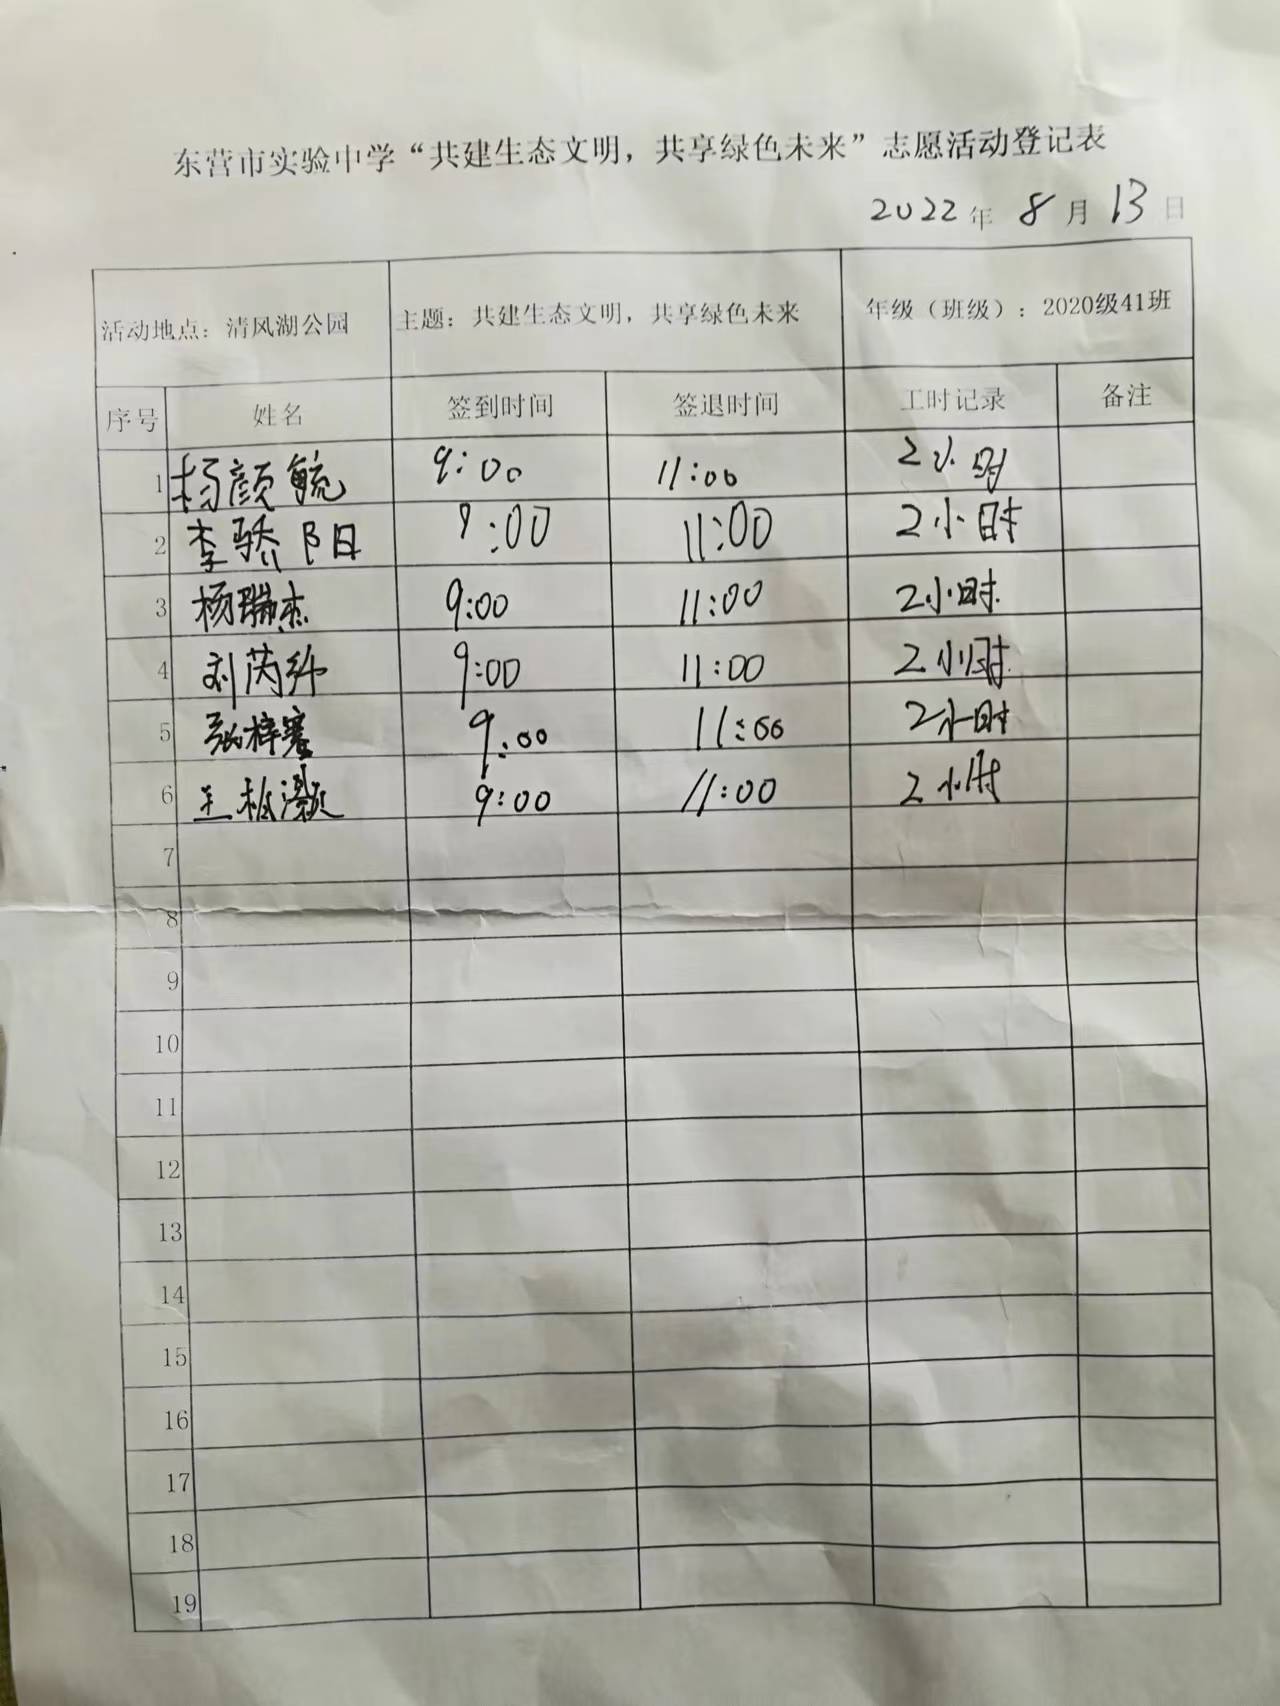 东营市实验中学“共建生态文明，共享绿色未来”志愿活动登记表
2022年 8月13日
活动地点：清风湖公园 主题：共建生态文明，共享绿色未来 年级（班级）：2020级41班
序号 姓名 签到时间 签退时间 工时记录 备注
1 杨颜毓 9:00 11:00 2小时
2 李骄阳 9:00 11:00 2小时
3 杨瑞杰 9:00 11:00 2小时
4 刘芮 9:00 11:00 2小时
5 张梓骞 9:00 11:00 2小时
6 王 灏 9:00 11:00 2小时
7
8
9
10
11
12
13
14
15
16
17
18
19